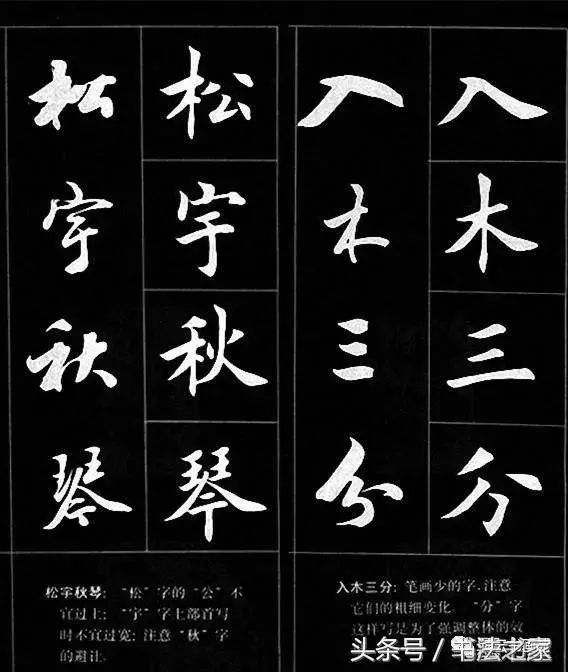 入木三分
入木三分
松宇秋琴
松宇秋琴
入木三分: 笔画少的字,注意
它们的粗细变化。“分”字
这样写是为了强调整体的效
松宇秋琴: “松”字的“公”不
宜过上; “宇”字上部首写
时不宜过宽; 注意“秋”字
的避让。
头条号 / 笔法之家